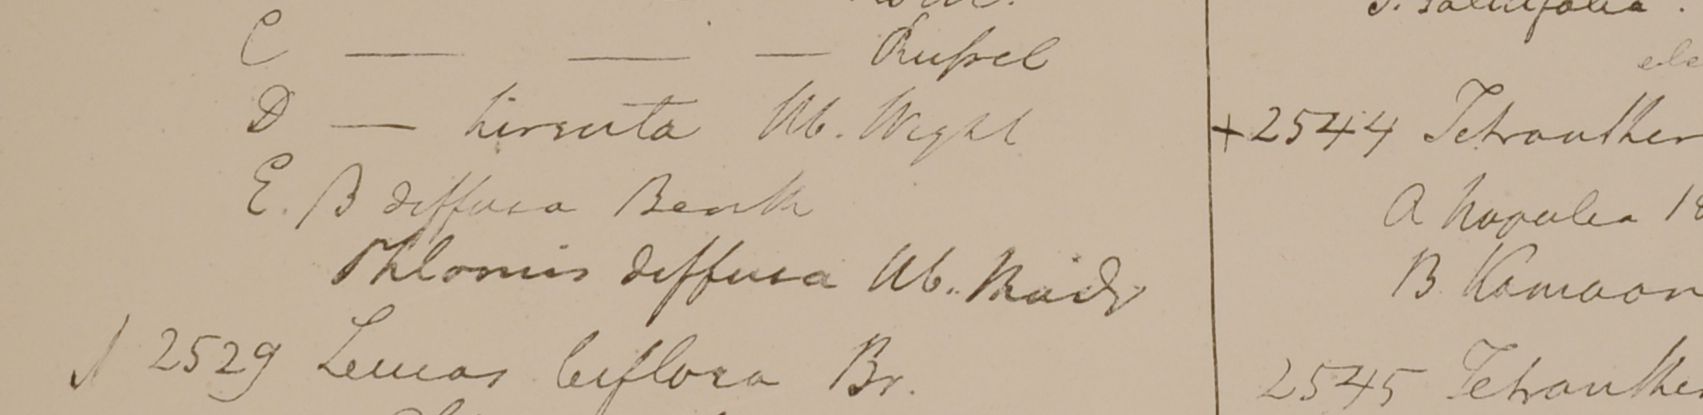 C — — — Russel
D — hirsuta Hb. Wight
E. β diffusa Benth
Phlomis diffusa Hb. Madr
2529 Leucas biflora Br.
S. salicifolia.
+ 2544 Tetranther
A Napalea 18
B Kamaon
2545 Tetranther